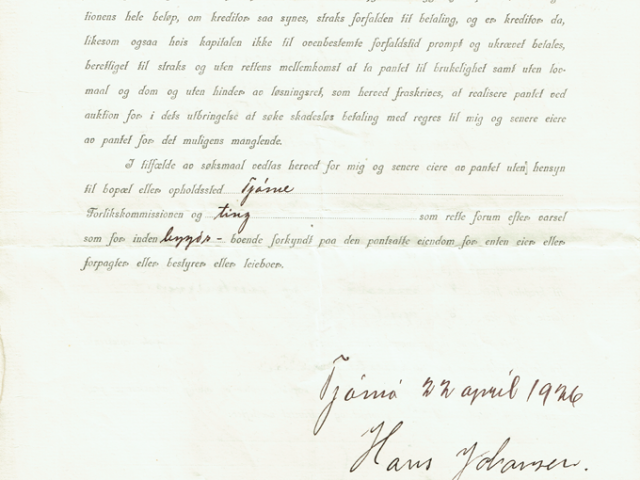 tionens hele beløp, om kreditor saa synes, straks forfalden til betaling, og er kreditor da,
likesom ogsaa hvis kapitalen ikke til ovenbestemte forfaldstid prompt og ukrævet betales,
berettiget til straks og uten rettens mellemkomst at ta pantet til brukelighet samt uten lov-
maal og dom og uten hinder av løsningsret, som herved fraskrives, at realisere pantet ved
auktion for i dets utbringelse at søke skadesløs betaling med regres til mig og senere eiere
av pantet for det muligens manglende.
I tilfælde av søksmaal vedtas herved for mig og senere eiere av pantet uten hensyn
til bopæl eller opholdssted Tjøme
Forlikskommissionen og ting som rette forum efter varsel
som for inden bygds- boende forkyndt paa den pantsatte eiendom for enten eier eller
forpagter eller bestyrer eller leieboer.
Tjömö 22 april 1926
Hans Johansen.